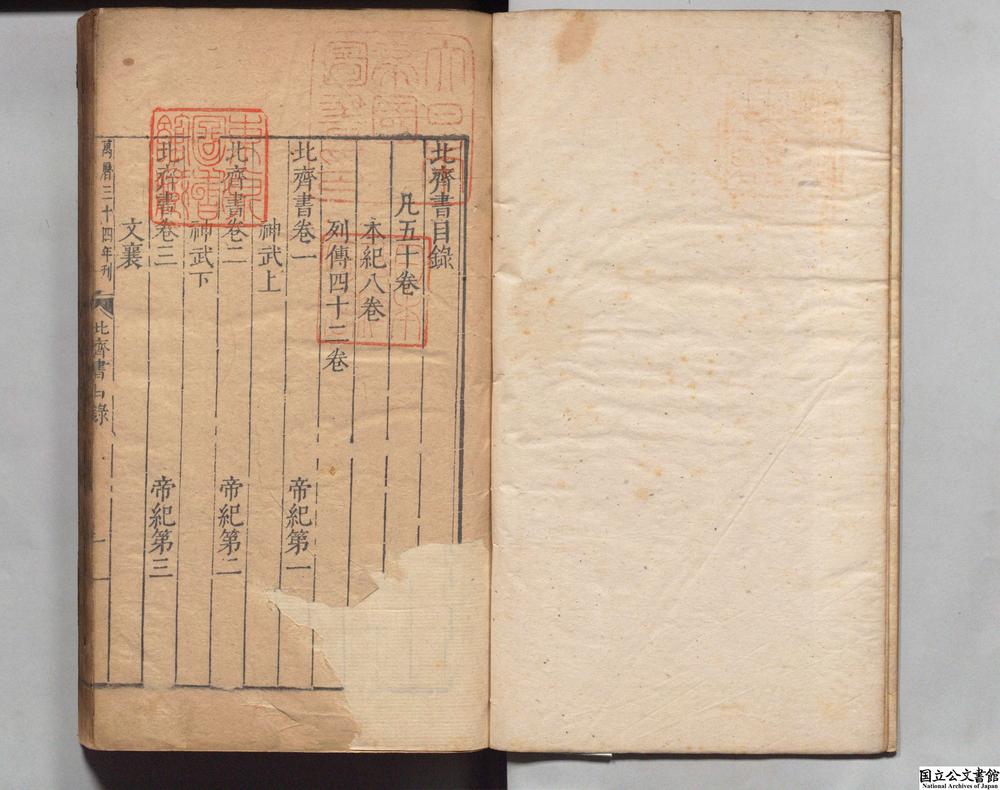 北齊書目錄
凡五十卷
本紀八卷
列傳四十二卷
北齊書卷一
神武上 帝紀第一
北齊書卷二
神武下 帝紀第二
北齊書卷三
文襄 帝紀第三
萬曆三十四年刊
北齊書目錄
一
東京圖書館藏
国立公文書館
National Archives of Japan